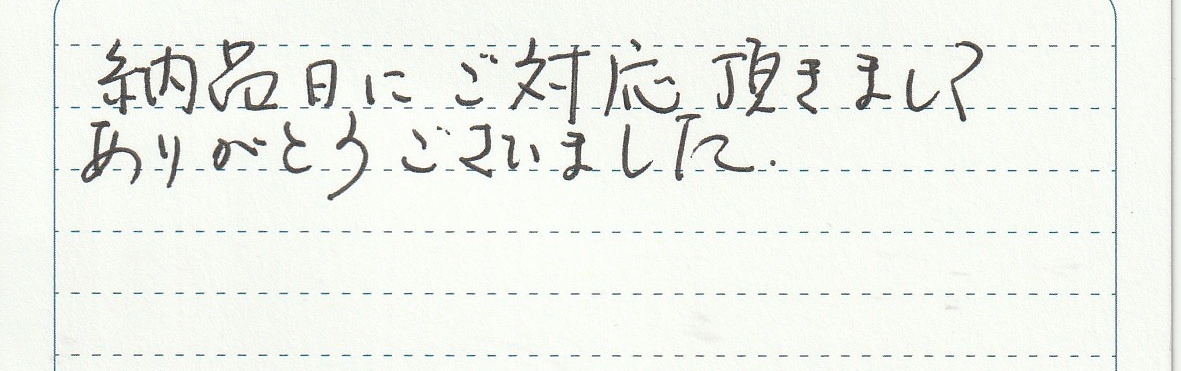 納品日にご対応頂きまして
ありがとうございました.